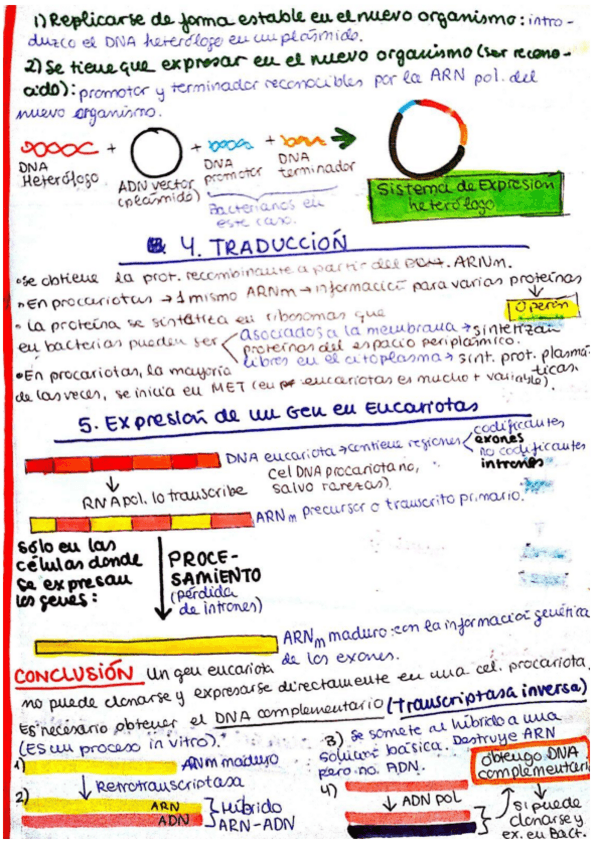 1) Replicarse de forma estable en el nuevo organismo: intro-
duzco el DNA heterólogo en un plásmido.
2) Se tiene que expresar en el nuevo organismo (ser recono-
cido): promotor y terminador reconocibles por la ARN pol. del
nuevo organismo.
DNA Heterólogo + ADN vector (plásmido) + DNA promotor + DNA terminador
Bacterianos en este caso.
Sistema de Expresión
heterólogo
4. TRADUCCIÓN
• Se obtiene la prot. recombinante a partir del ARNm.
• En procariotas → 1 mismo ARNm → información para varias proteínas
Operón
• La proteína se sintetiza en ribosomas que
en bacterias pueden ser
asociados a la membrana → sintetizan
proteínas del espacio periplásmico.
libres en el citoplasma → sint. prot. plasmá-
ticas.
• En procariotas, la mayoría
de las veces, se inicia en MET (en eucariotas es mucho + variable).
5. Expresión de un Gen en Eucariotas
DNA eucariota → contiene regiones
codificantes
exones
no codificantes
intrones
(el DNA procariota no,
salvo rarezas).
RNA pol. lo transcribe
ARNm precursor o transcrito primario.
sólo en las
células donde
se expresan
los genes:
PROCE-
SAMIENTO
(pérdida
de intrones)
ARNm maduro: con la información genética
de los exones.
CONCLUSIÓN Un gen eucariota
no puede clonarse y expresarse directamente en una cel. procariota.
Es necesario obtener el DNA complementario (transcriptasa inversa)
(ES un proceso in vitro).
1) ARNm maduro
Retrotranscriptasa
2) ARN
ADN
Híbrido
ARN-ADN
3) Se somete al híbrido a una
solución básica. Destruye ARN
pero no ADN.
4)
ADN pol
obtengo DNA
complementario
Si puede
clonarse y
ex. en Bact.